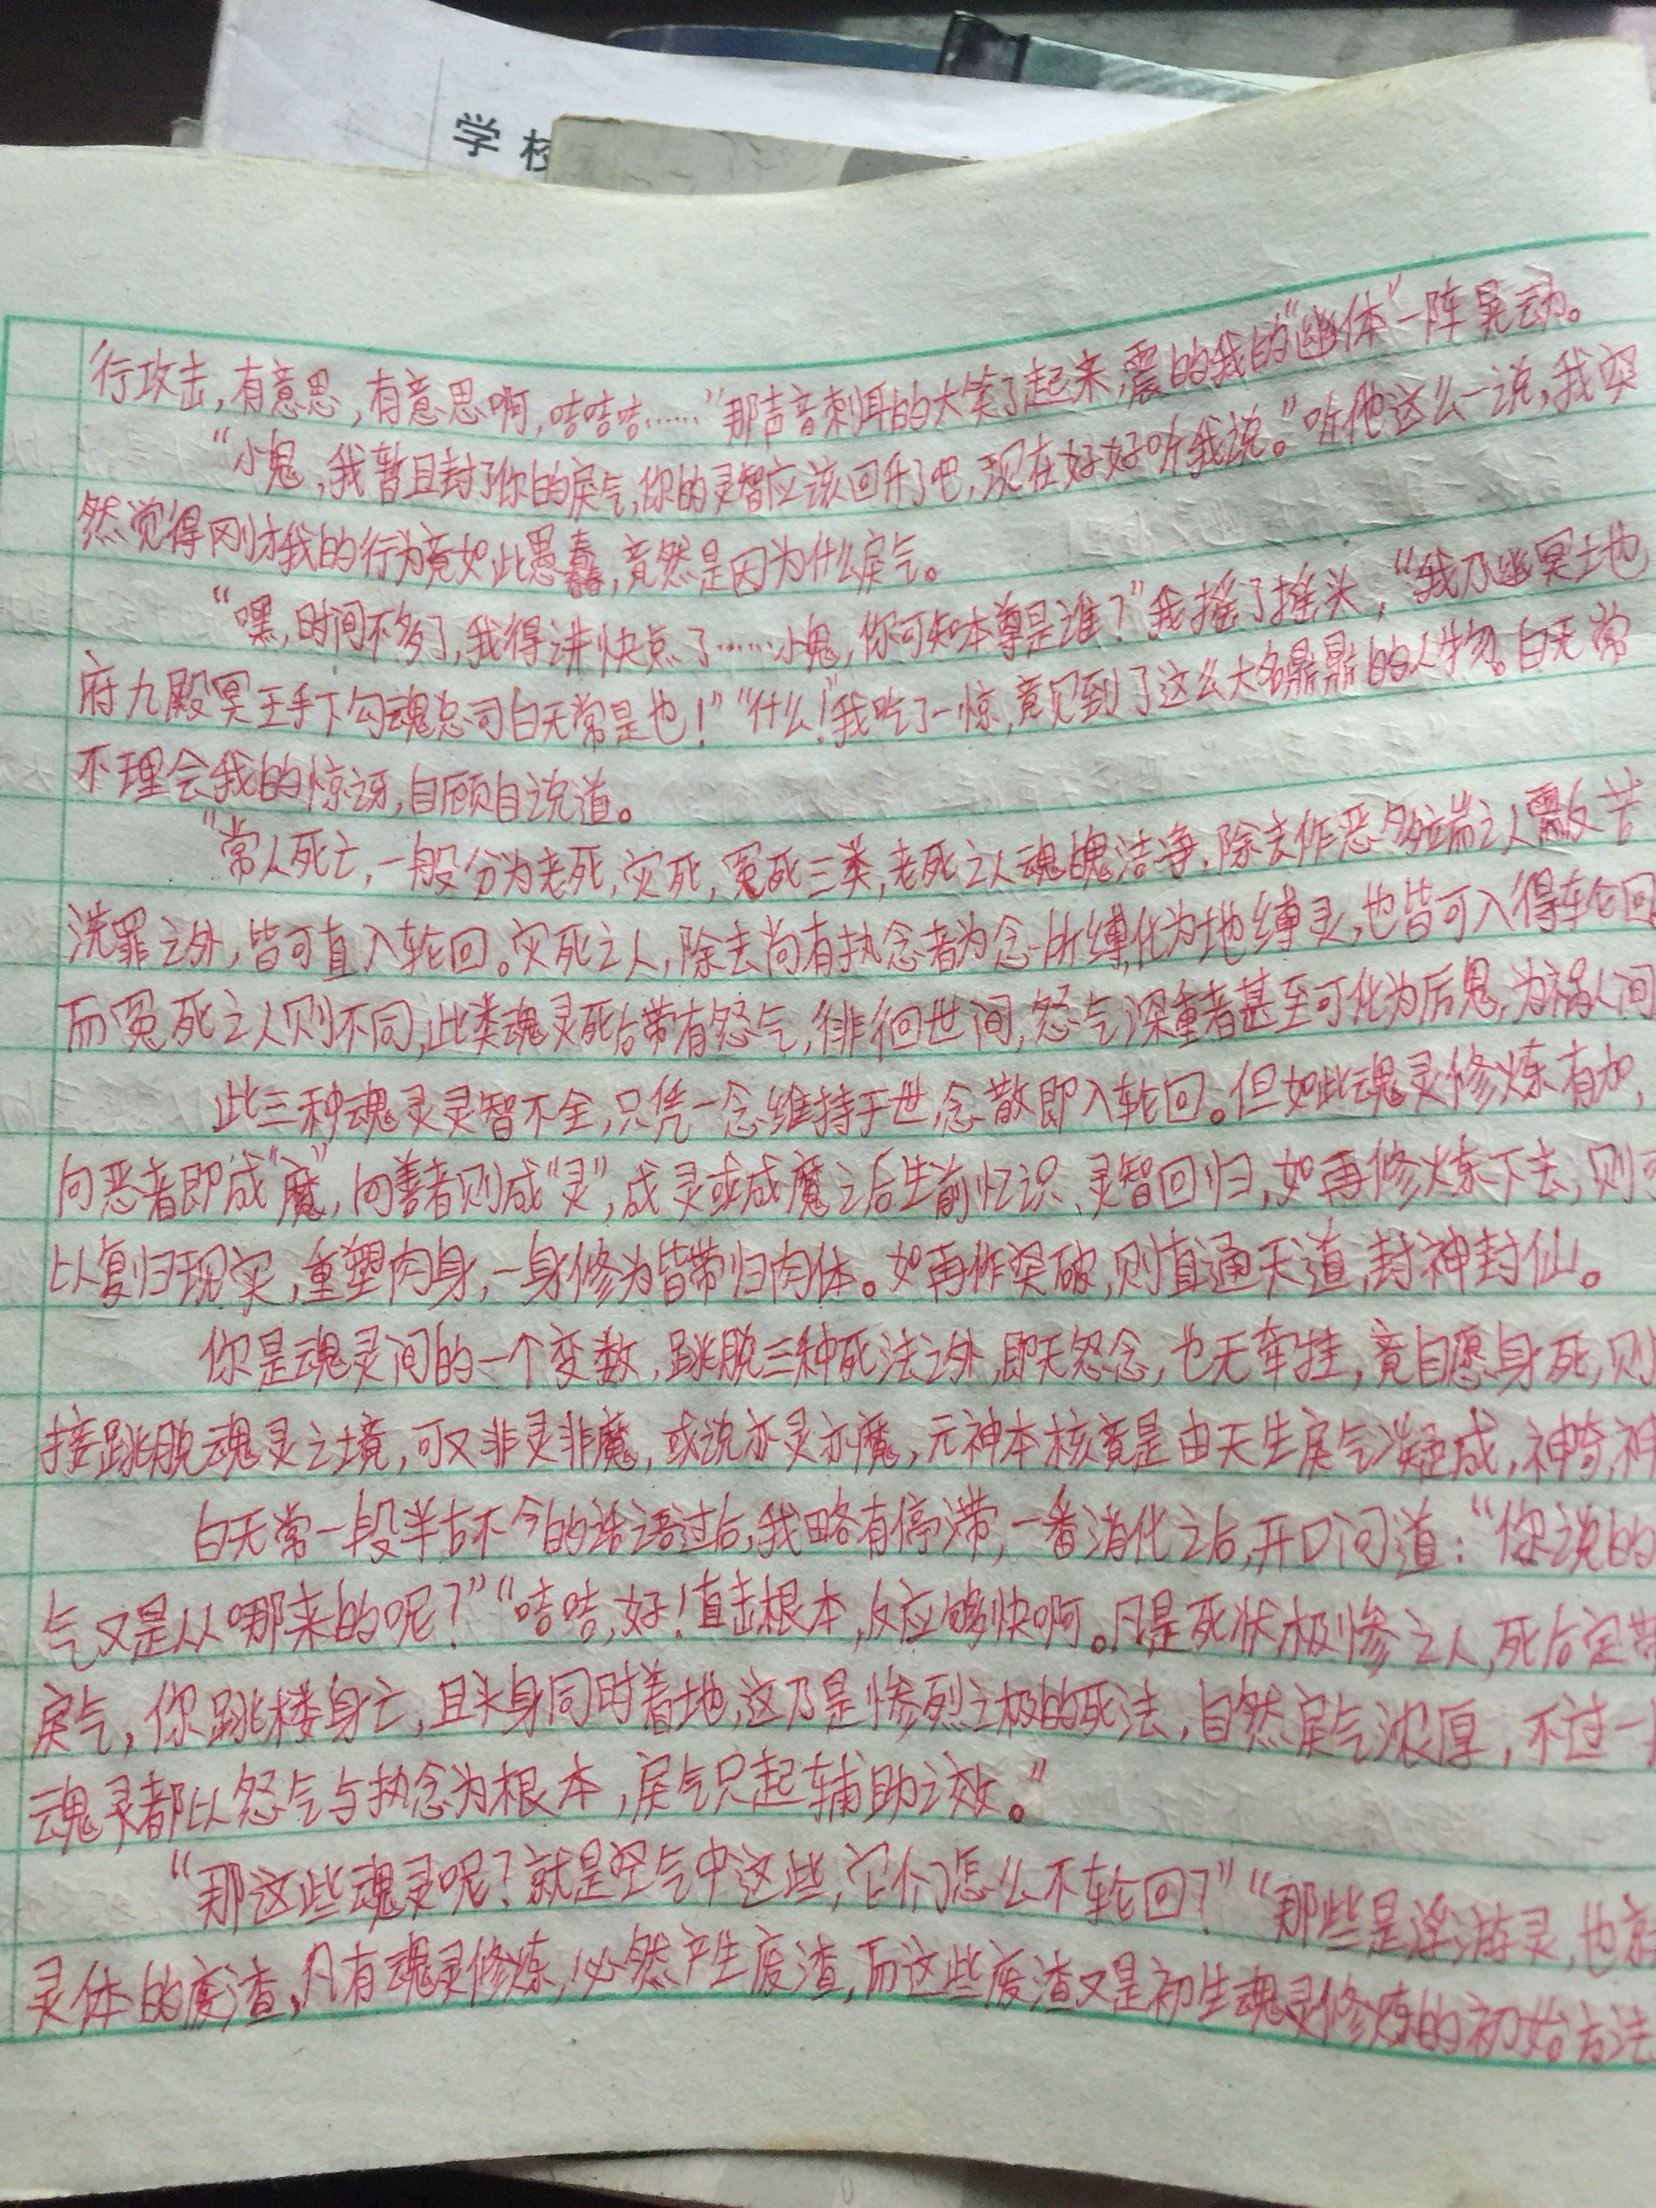 学校
行攻击，有意思，有意思啊，咭咭咭……”那声音刺耳的大笑了起来，震的我的“幽体”一阵晃动。
“小鬼，我暂且封了你的戾气，你的灵智应该回升了吧，现在好好听我说。”听他这么一说，我突
然觉得刚才我的行为竟如此愚蠢，竟然是因为什么戾气。
“嘿，时间不多了，我得讲快点了……小鬼，你可知本尊是谁？”我摇了摇头，“我乃幽冥土地
府九殿冥王手下勾魂总司白无常是也！”“什么！”我吃了一惊，竟见到了这么大名鼎鼎的人物。白无常
不理会我的惊讶，自顾自说道。
“常人死亡，一般分为老死，灾死，冤死三类，老死之人魂魄洁净，除去作恶多端之人需反苦
洗罪之外，皆可直入轮回。灾死之人，除去尚有执念者为念所缚化为地缚灵，也皆可入得轮回
而冤死之人则不同，此类魂灵死后带有怨气，徘徊世间，怨气深重者甚至可化为厉鬼，为祸人间
此三种魂灵灵智不全，只凭一念维持于世，念散即入轮回。但如此魂灵修炼有加，
向恶者即成“魔”，向善者则成“灵”，成灵或成魔之后生前忆识、灵智回归，如再修炼下去，则可
以复归现实，重塑肉身，一身修为皆带归肉体。如再作突破，则直通天道，封神封仙。
你是魂灵间的一个变数，跳脱三种死法之外，即无怨念，也无牵挂，竟自愿身死，则
接跳脱魂灵之境，可又非灵非魔，或说亦灵亦魔，元神本核竟是由天生戾气凝成，神奇，神
白无常一段半古不今的话语过后，我略有停滞，一番消化之后，开口问道：“你说的
气又是从哪来的呢？”“咭咭，好！直击根本，反应够快啊。凡是死状极惨之人，死后定带
戾气，你跳楼身亡，且头身同时着地，这乃是惨烈之极的死法，自然戾气浓厚，不过一
魂灵都以怨气与执念为根本，戾气只起辅助之效。”
“那这些魂灵呢？就是空气中这些，它们怎么不轮回？”“那些是浮游灵，也就
灵体的废渣，凡有魂灵修炼，必然产生废渣，而这些废渣又是初生魂灵修炼的初始方法